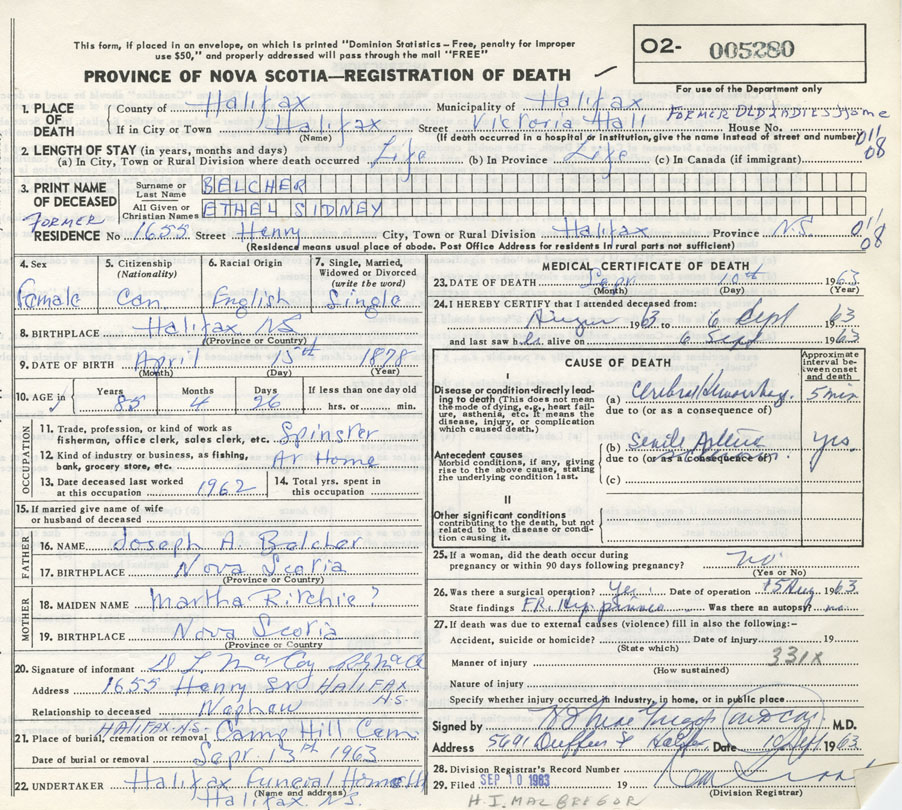 This form, if placed in an envelope, on which is printed "Dominion Statistics – Free, penalty for improper
use $50," and properly addressed will pass through the mail "FREE"
O2- 005280
PROVINCE OF NOVA SCOTIA—REGISTRATION OF DEATH
For use of the Department only
1. PLACE OF DEATH
County of Halifax Municipality of Halifax
If in City or Town Halifax Street Victoria Hall House No.
FORMER OLD LADIES HOME
(Name) (If death occurred in a hospital or institution, give the name instead of street and number)
011/08
2. LENGTH OF STAY (in years, months and days)
(a) In City, Town or Rural Division where death occurred Life (b) In Province Life (c) In Canada (if immigrant)
3. PRINT NAME OF DECEASED
Surname or Last Name BELCHER
All Given or Christian Names ETHEL SIDNEY
FORMER
RESIDENCE No 1655 Street Henry City, Town or Rural Division Halifax Province N.S. 011/08
(Residence means usual place of abode. Post Office Address for residents in rural parts not sufficient)
4. Sex Female
5. Citizenship (Nationality) Can
6. Racial Origin English
7. Single, Married, Widowed or Divorced (write the word) Single
8. BIRTHPLACE Halifax NS
(Province or Country)
9. DATE OF BIRTH April 15th 1878
(Month) (Day) (Year)
10. AGE in Years 85 Months 4 Days 26 If less than one day old hrs. or min.
OCCUPATION
11. Trade, profession, or kind of work as fisherman, office clerk, sales clerk, etc. Spinster
12. Kind of industry or business, as fishing, bank, grocery store, etc. At Home
13. Date deceased last worked at this occupation 1962
14. Total yrs. spent in this occupation
15. If married give name of wife or husband of deceased
FATHER
16. NAME Joseph A. Belcher
17. BIRTHPLACE Nova Scotia
(Province or Country)
MOTHER
18. MAIDEN NAME Martha Ritchie?
19. BIRTHPLACE Nova Scotia
(Province or Country)
20. Signature of informant
Address 1655 Henry St HALIFAX N.S.
Relationship to deceased Nephew
21. Place of burial, cremation or removal HALIFAX N.S. Camp Hill Cem
Date of burial or removal Sept. 13th 1963
22. UNDERTAKER Halifax Funeral Home
(Name and address)
Halifax. N.S.
MEDICAL CERTIFICATE OF DEATH
23. DATE OF DEATH Sept 10th 1963
(Month) (Day) (Year)
24. I HEREBY CERTIFY that I attended deceased from:
1963 to 6 Sept 1963
and last saw h alive on 6 Sept 1963
CAUSE OF DEATH
Approximate interval between onset and death
I
Disease or condition directly leading to death (This does not mean the mode of dying, e.g., heart failure, asthenia, etc. It means the disease, injury, or complication which caused death.)
(a) Cerebral Hemorrhage 5 min
due to (or as a consequence of)
Antecedent causes
Morbid conditions, if any, giving rise to the above cause, stating the underlying condition last.
(b) Senile yrs.
due to (or as a consequence of)
(c)
II
Other significant conditions contributing to the death, but not related to the disease or condition causing it.
25. If a woman, did the death occur during pregnancy or within 90 days following pregnancy? no
(Yes or No)
26. Was there a surgical operation? Yes Date of operation 15 Aug 1963
State findings FR. Hip Was there an autopsy no
27. If death was due to external causes (violence) fill in also the following:–
Accident, suicide or homicide? Date of injury 19
(State which)
Manner of injury 331X
(How sustained)
Nature of injury
Specify whether injury occurred in industry, in home, or in public place
Signed by M.D.
Address 5691 Duffus St Halifax Date 10 Sept 1963
28. Division Registrar's Record Number
29. Filed SEP 10 1963 19
(Division Registrar)
H.I. MACGREGOR